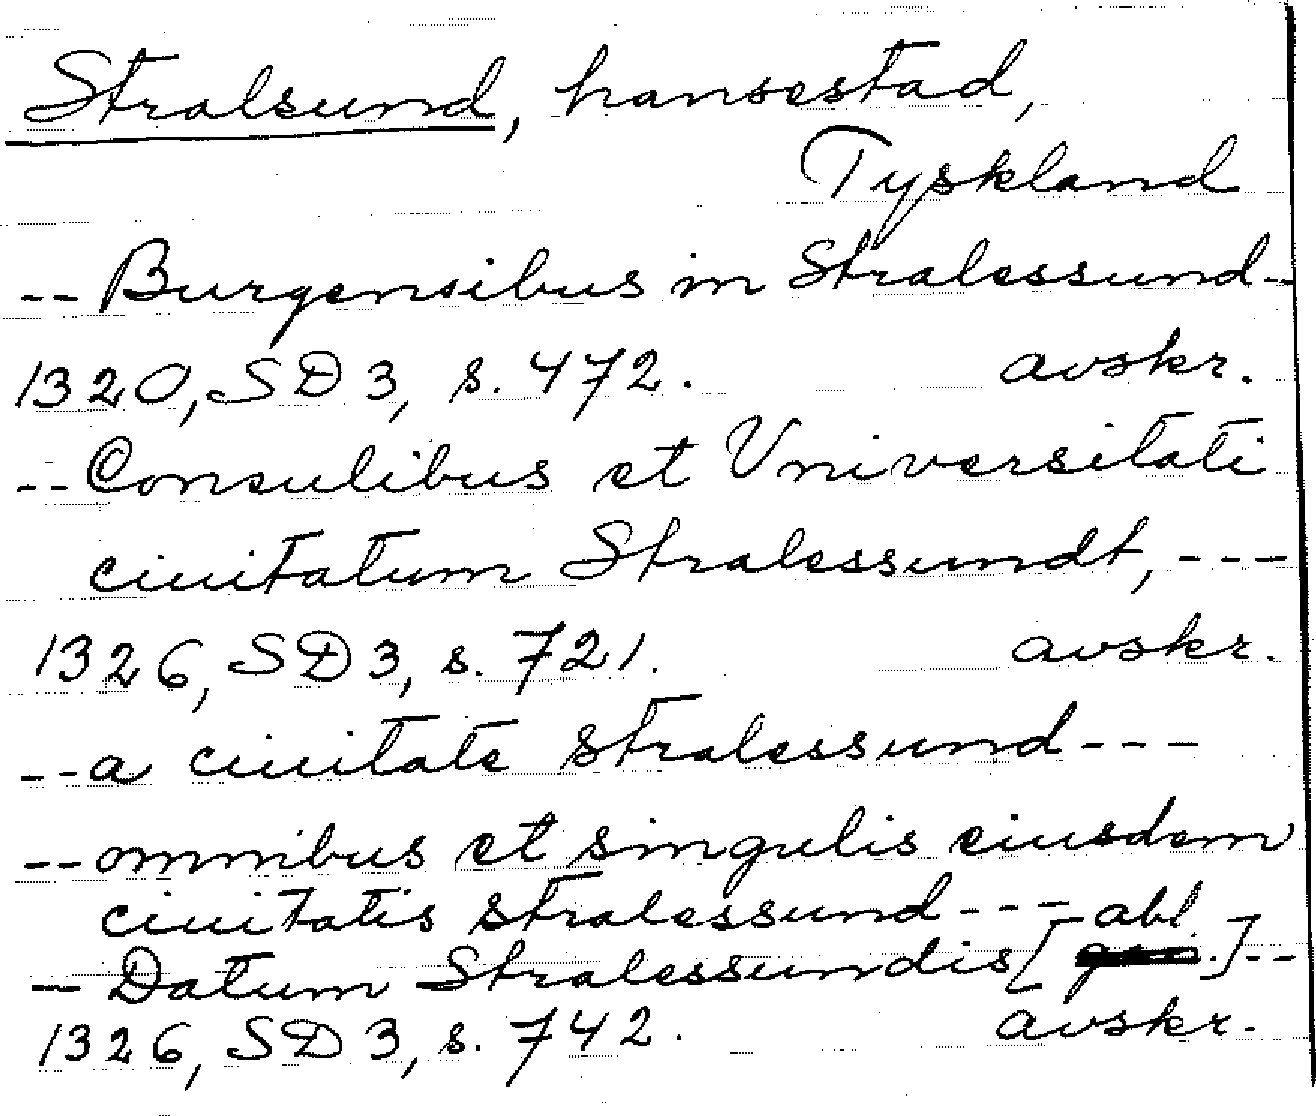 Stralsund, hansestad,
Tyskland
-- Burgensibus in Stralessund -
1320, SD 3, s. 472. avskr.
-- Consulibus et Vniversitati
ciuitatum Stralessundt, ---
1326, SD 3, s. 721. avskr.
-- a ciuitate stralessund ---
-- omnibus et singulis eiusdem
ciuitatis stralessund ---
-- Datum Stralessundis [abl.] --
1326, SD 3, s. 742. avskr.